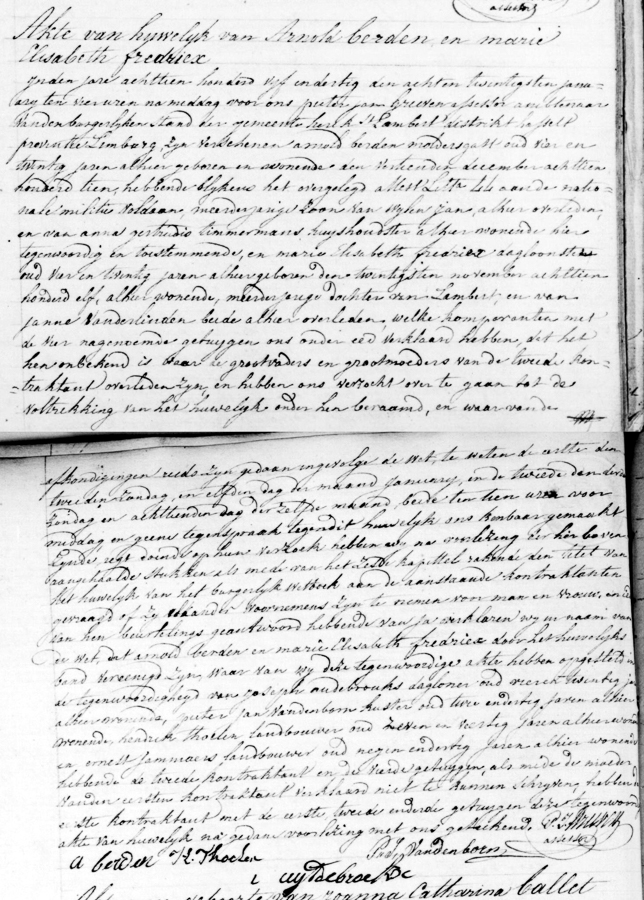 assessor
Akte van huwelyk van Arnold berden en marie
Elisabeth fredriex
jnden jare achttien honderd vyf endertig den achten twentigsten janu-
ary ten vier uren na meddag voor ons pieter jan Greven assessor ambtenaar
vanden burgerlyken Stand der gemeente kerk St Lambert distrikt hasselt
provintie Limburg, zyn verschenen arnold berden molders gast oud vier en
twintig jaren alhier geboren en wonende den december achttien
honderd tien, hebbende blykens het overgelegd attest Letta aande natio-
nale militie voldaan, meerderjarige Zoon van wylen Jan, alhier overleden,
en van anna gertrudis Timmermans huyshoudster alhier wonende hier
tegenwoordig en toestemmende, en marie Elisabeth fredriex dagloonster
oud vier en twintig jaren alhier geboren den twintigsten november achttien
honderd elf, alhier wonende, meerderjarige dochter van Lambert, en van
janne Vanderlinden beide alhier overleden, welke komparanten met
de vier nagenoemde getuygen ons onder eed verklaard hebben, dat het
hen onbekend is waar de grootvaders en grootmoeders van de tweede kon-
traktant overleden zyn, en hebben ons verzocht over te gaan tot de
voltrekking van het huwelyk onder hen beraamd, en waar van de
afkondigingen reeds zyn gedaan ingevolge de wet, te weten de eerste den
tweeden zondag, en elfden dag der maand january, en de tweede den derden
zondag en achttienden dag der zelfde maand, beide ten tien uren voor
middag en geene tegenspraak tegen dit huwelyk ons kenbaar gemaakt
zynde, regt doende op hun verzoek hebben wy na voorlezing der hier boven
aangehaalde stukken als mede van het zesde kapittel rakende den titel van
het huwelyk van het burgerlyk wetboek aan de aanstaande kontraktanten
gevraagd of zy elkander voornemens zyn te nemen voor man en vrouw, en
van hen beurtelings geantwoord hebbende van ja verklaren wy in naam van
de wet, dat arnold berden en marie Elisabeth fredriex door het huwelyks
band vereenigd zyn, waar van wy deze tegenwoordige akte hebben opgesteld in
de tegenwoordigheyd van joseph daglooner oud vierentsestig jaren
alhier wonende, pieter jan Vandenborn kuster oud twee endertig jaren alhier
wonende, hendrik Thoelen landbouwer oud zeven en veertig jaren alhier wonende
en ernest jammaers landbouwer oud negen endertig jaren alhier wonende
hebbende de tweede kontraktant en de vierde getuygen, als mede de moeder
vanden eersten kontraktant verklaard niet te kunnen schryven, hebben
eerste kontraktant met de eerste, tweede en derde getuygen deze tegenwoordige
akte van huwelyk na gedane voorlezing met ons geteekend. P. J. Greven
assessor
A berden H. Thoelen P. J. Vandenborn
Akte van geboorte van joanna Catharina Callet